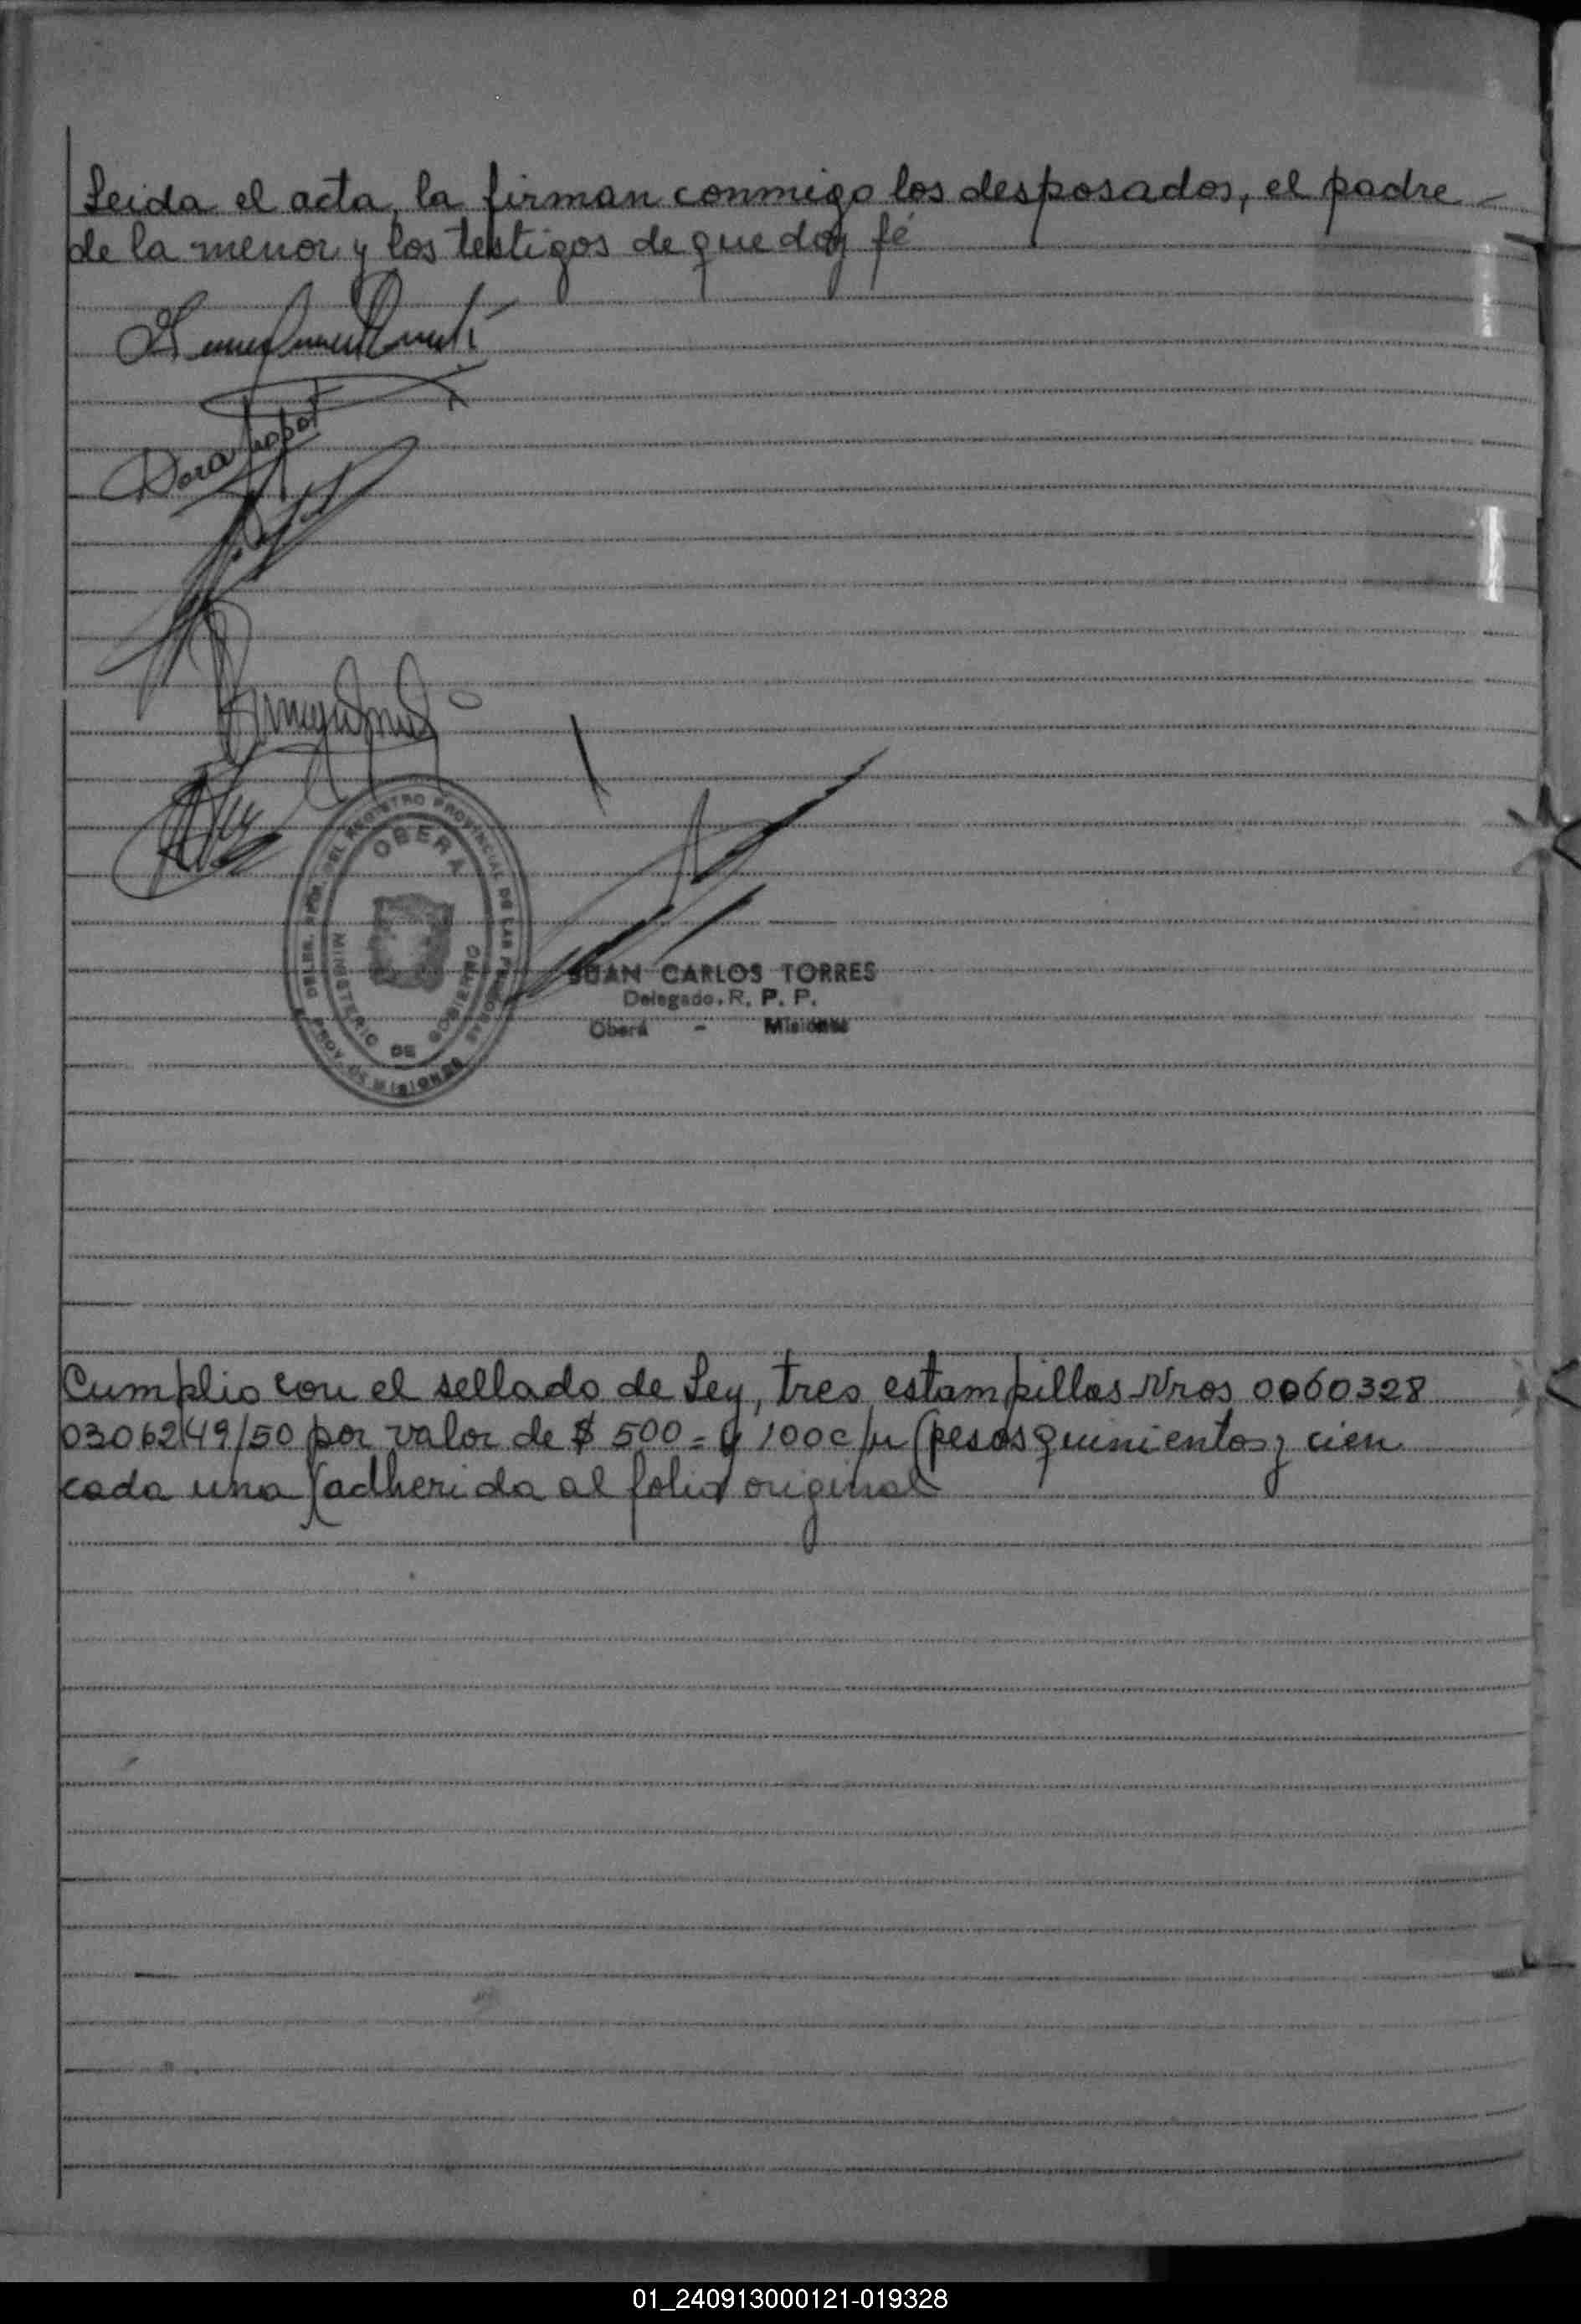 Leida el acta, la firman conmigo los desposados, el padre
de la menor y los testigos de que doy fé
Dora
DELEG. DEL REGISTRO PROVINCIAL DE LAS PERSONAS
OBERÁ
MINISTERIO DE GOBIERNO
PROV. DE MISIONES
JUAN CARLOS TORRES
Delegado. R. P. P.
Oberá - Misiones
Cumplio con el sellado de Ley, tres estampillas Nros 0060328
0306249/50 por valor de $ 500= y 100 c/u (pesos quinientos y cien
cada una) adherida al folio original
01_240913000121-019328